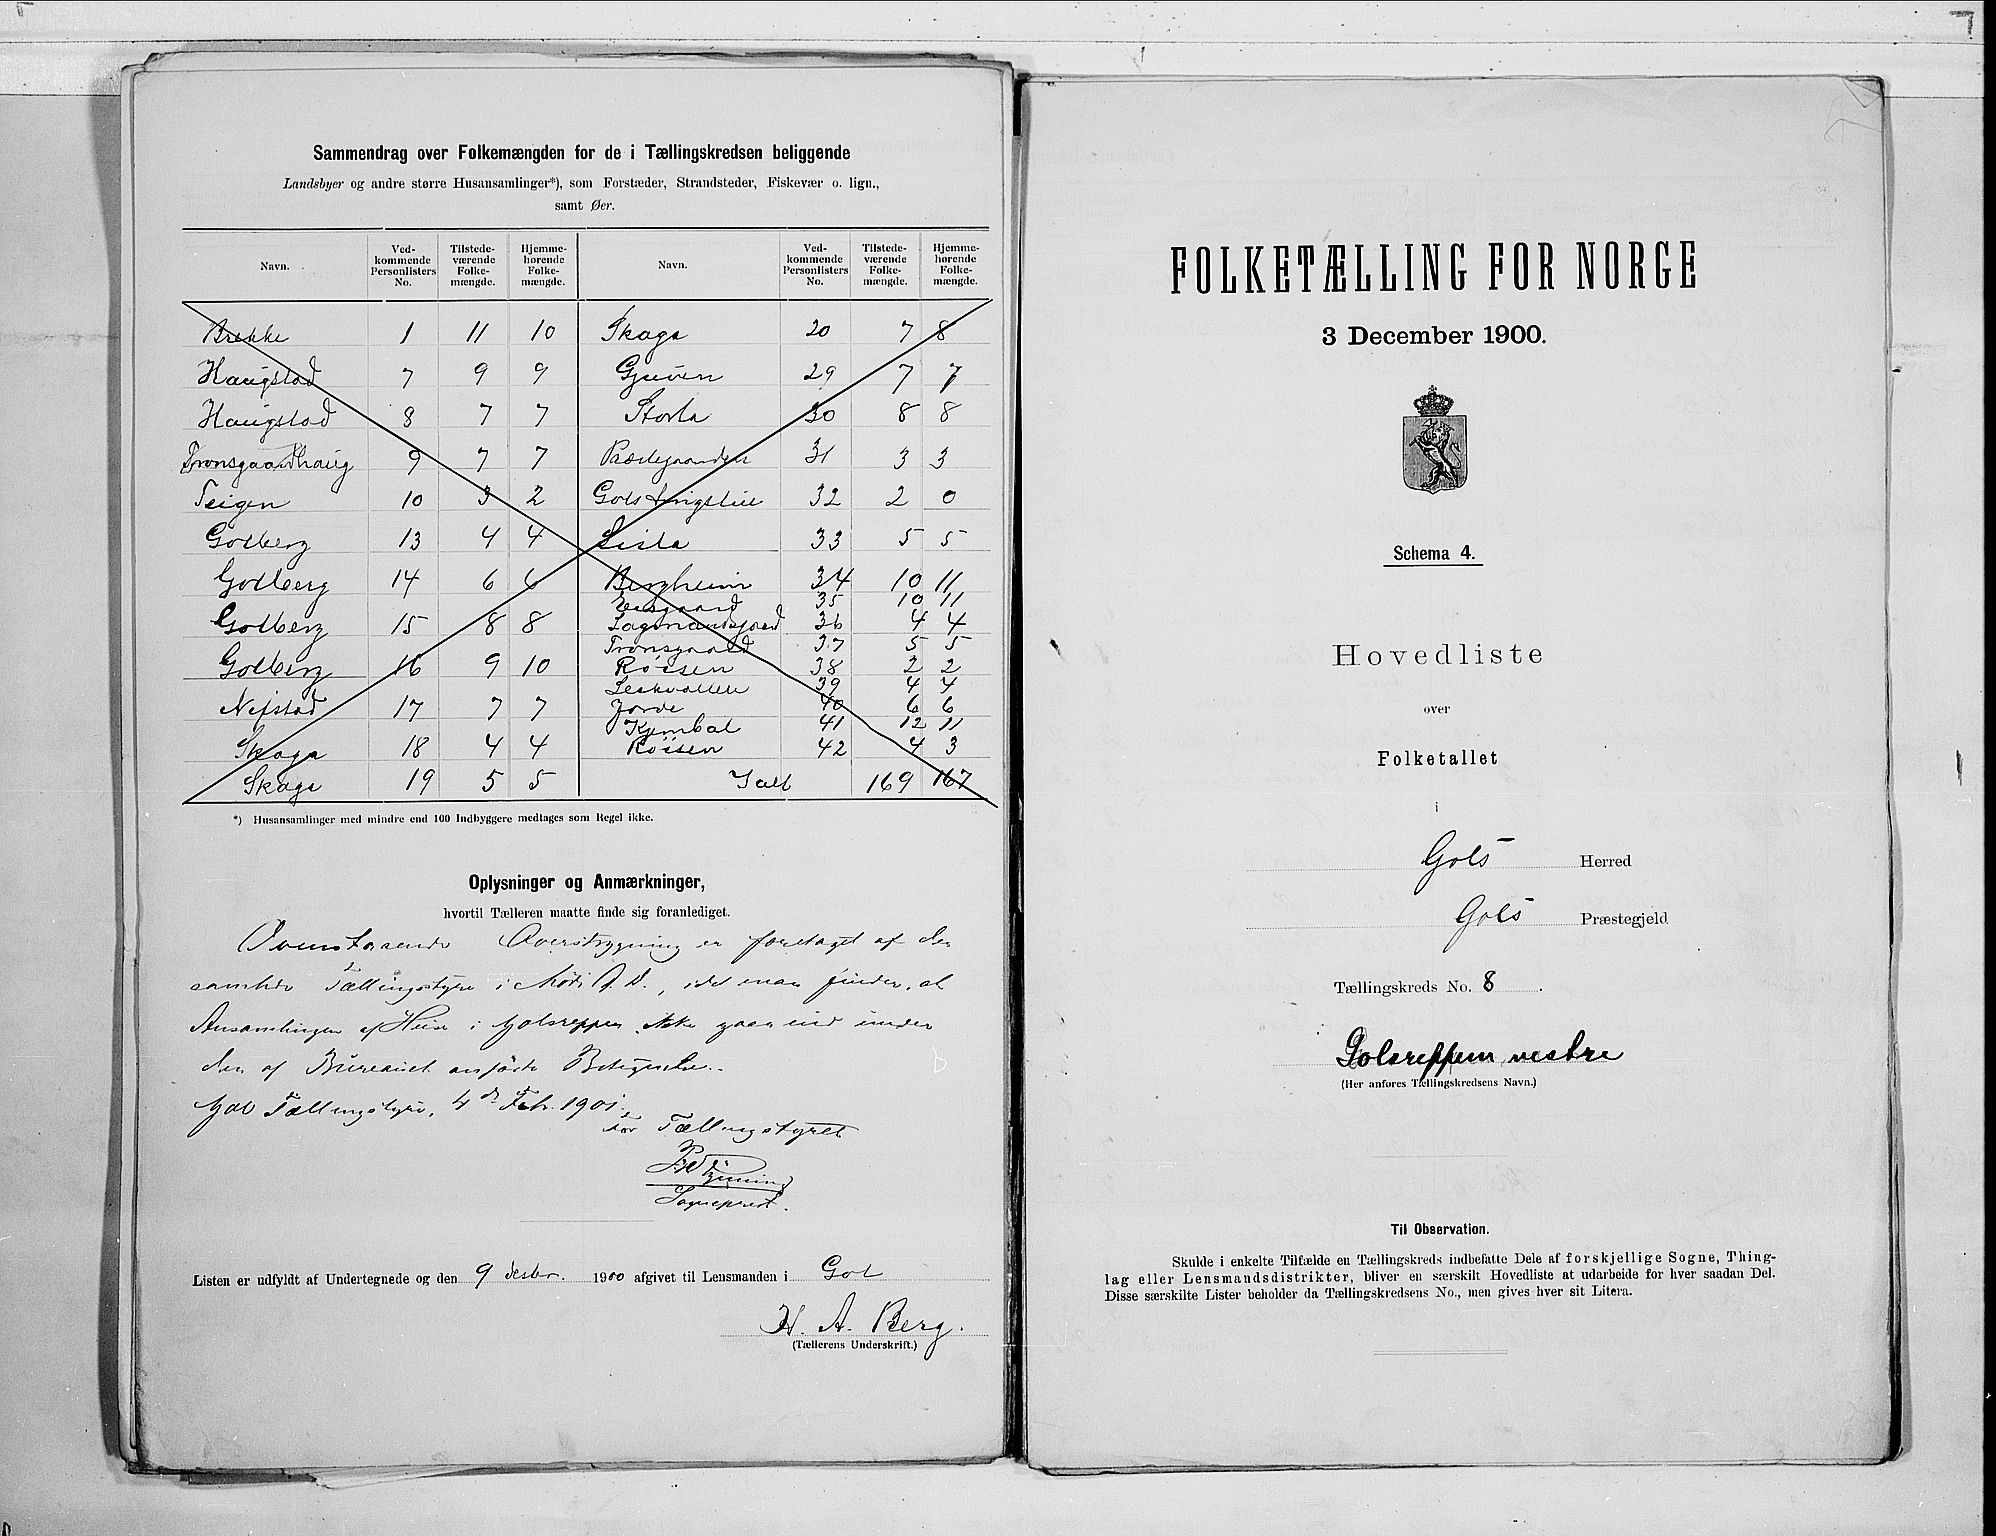 Sammendrag over Folkemængden for de i Tællingskredsen beliggende
Landsbyer og andre større Husansamlinger*), som Forstæder, Strandsteder, Fiskevær o. lign.,
samt Øer.
Navn. Ved-kommende Personlisters No. Tilstede-værende Folke-mængde. Hjemme-hørende Folke-mængde. Navn. Ved-kommende Personlisters No. Tilstede-værende Folke-mængde. Hjemme-hørende Folke-mængde.
Brekke 1 11 10 Skaga 20 7 8
Haugstad 7 9 9 Gjuven 29 7 7
Haugstad 8 7 7 Storla 30 8 8
Tronsgaardhaug 9 7 7 Præstegaarden 31 3 3
Teigen 10 3 2 Gols 32 2 0
Golberg 13 4 4 33 5 5
Golberg 14 6 6 Bergheim 34 10 11
Eisgaard 35 10 11
Golberg 15 8 8 Lagmandsgaard 36 4 4
Tronsgaard 37 5 5
Golberg 16 9 10 Røisen 38 2 2
39 4 4
Nefstad 17 7 7 Jorde 40 6 6
41 12 11
Skaga 18 4 4 Røisen 42 4 3
Skaga 19 5 5 Ialt 169 167
*) Husansamlinger med mindre end 100 Indbyggere medtages som Regel ikke.
Oplysninger og Anmærkninger,
hvortil Tælleren maatte finde sig foranlediget.
Ovenstaaende Overstrygning er foretaget af den
samlede Tællingsstyre i Møde D. D., idet man finder, at
Ansamlingen af Huse i Golsreppen ikke gaar ind under
den af Bureauet anførte Betegnelse.
Gol Tællingsstyre, 4de Feb. 1901.
For Tællingsstyret
Sogneprest.
Listen er udfyldt af Undertegnede og den 9 desbr. 1900 afgivet til Lensmanden i Gol
H. A. Berg.
(Tællerens Underskrift.)
FOLKETÆLLING FOR NORGE
3 December 1900.
Schema 4.
Hovedliste
over
Folketallet
i
Gols Herred
Gols Præstegjeld
Tællingskreds No. 8.
Golsreppen vestre
(Her anføres Tællingskredsens Navn.)
Til Observation.
Skulde i enkelte Tilfælde en Tællingskreds indbefatte Dele af forskjellige Sogne, Thing-
lag eller Lensmandsdistrikter, bliver en særskilt Hovedliste at udarbeide for hver saadan Del.
Disse særskilte Lister beholder da Tællingskredsens No., men gives hver sit Litera.